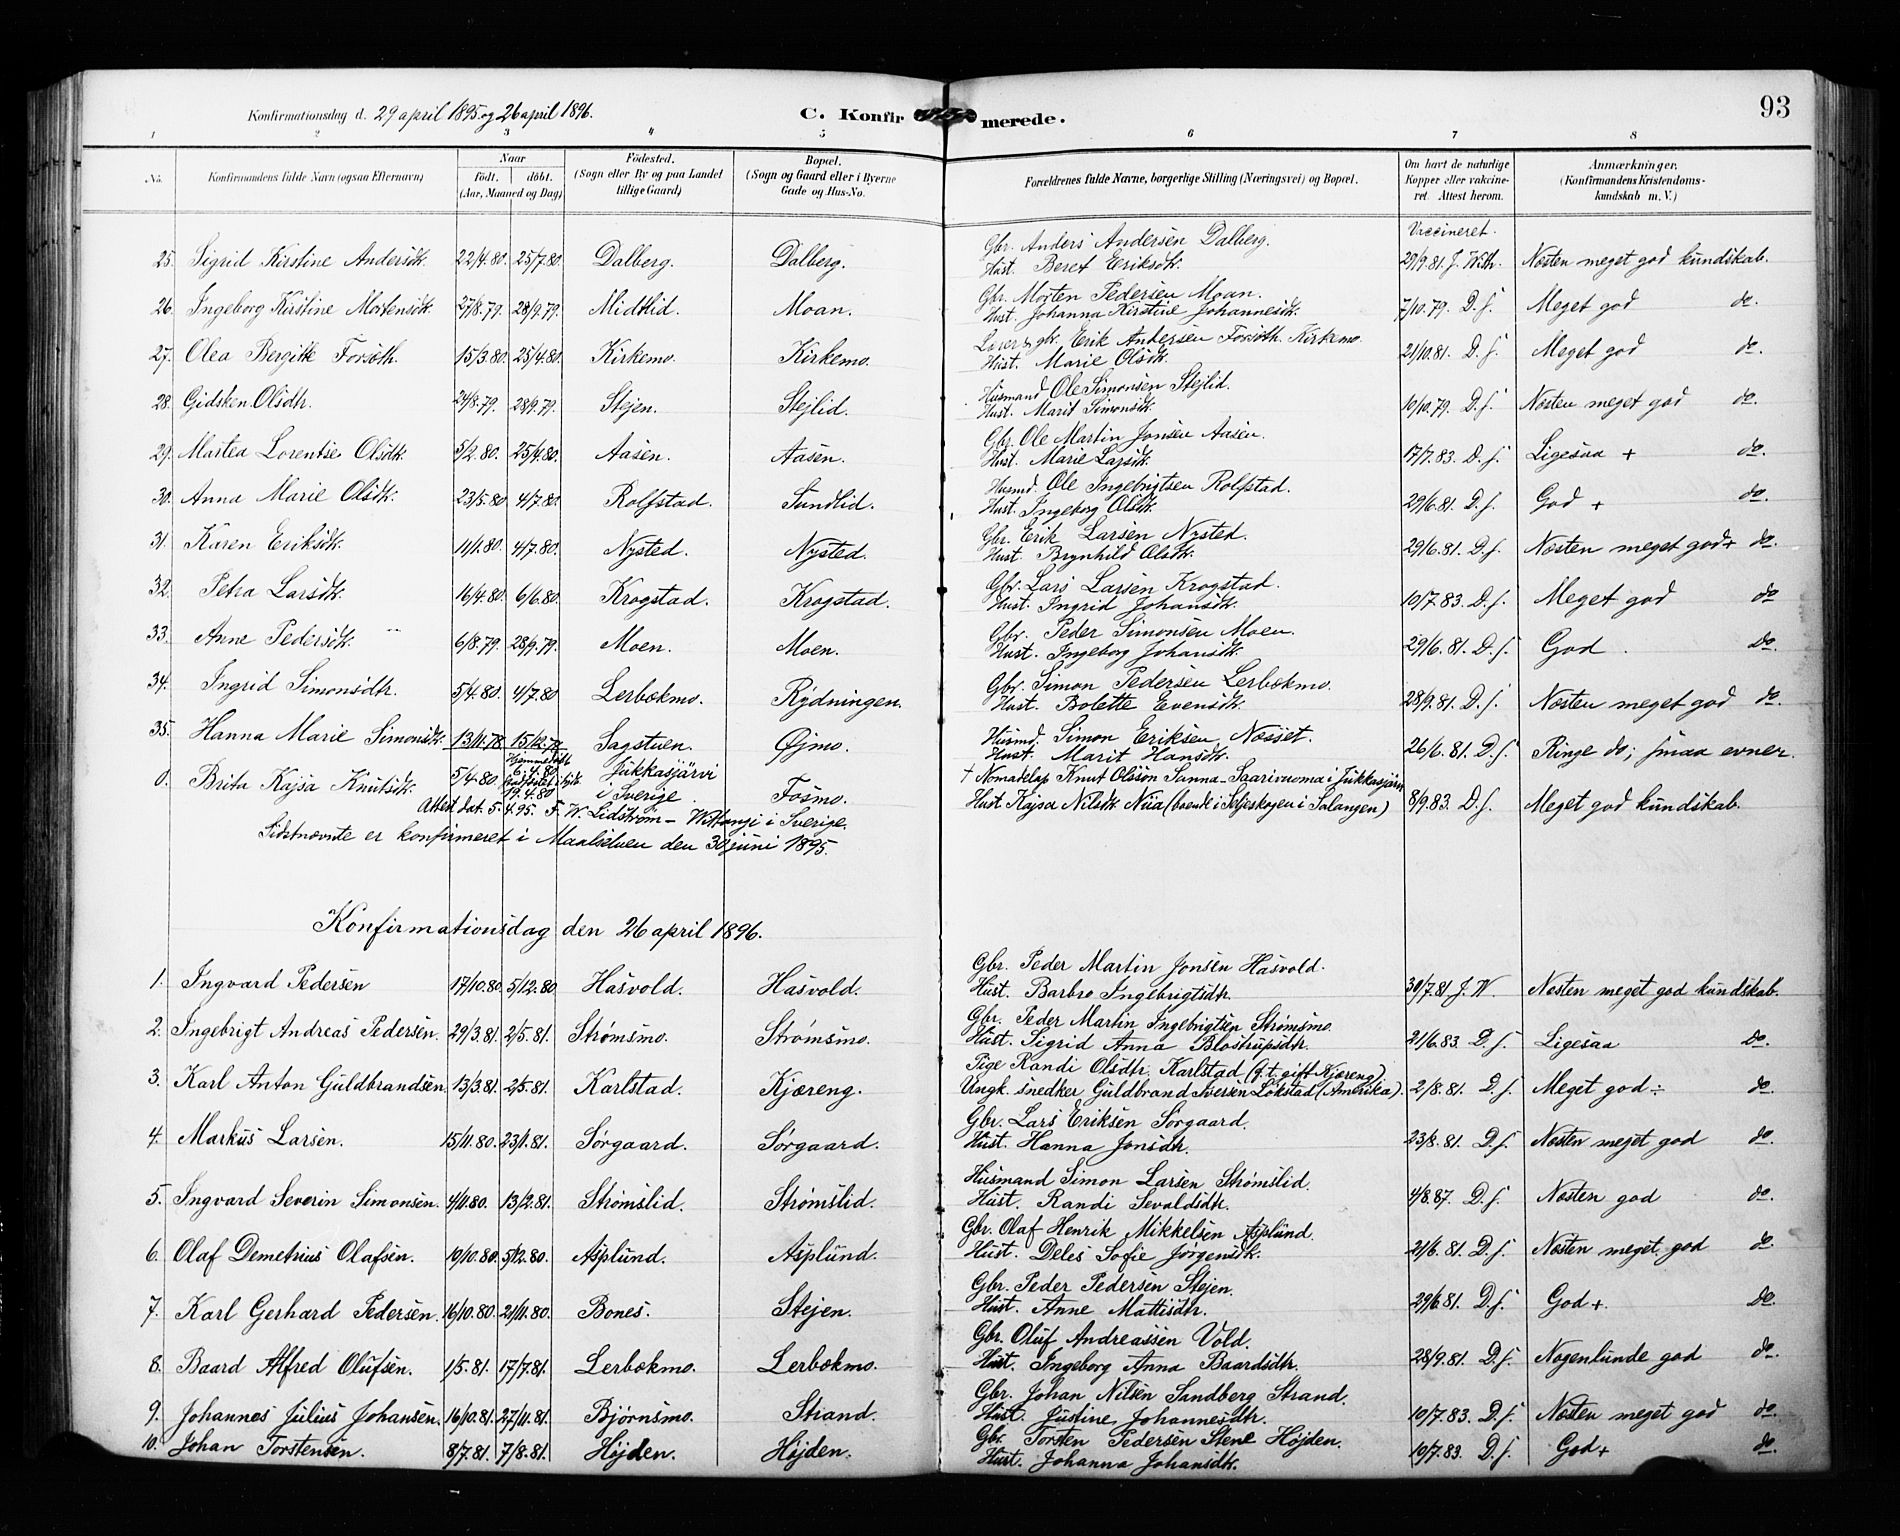 Konfirmationsdag d. 29 april 1895 og 26 april 1896.
C. Konfirmerede.
93
1 2 3 4 5 6 7 8
No. Konfirmandens fulde Navn (ogsaa Efternavn) Naar født. døbt. (Aar, Maaned og Dag) Fødested. (Sogn eller By og paa Landet tillige Gaard) Bopæl. (Sogn og Gaard eller i Byerne Gade og Hus-No. Forældrenes fulde Navne, borgerlige Stilling (Næringsvei) og Bopæl. Om havt de naturlige Kopper eller vakcineret. Attest herom. Anmærkninger. (Konfirmandens Kristendomskundskab m. V.)
Vaccineret.
25. Sigrid Kirstine Andersdtr. 22/4.80. 25/7.80 Dalberg. Dalberg. Gbr. Anders Andersen Dalberg. Hust. Beret Eriksdtr. 29/9.81. J. With. Næsten meget god kundskab.
26. Ingeborg Kirstine Mortensdtr. 27/8.79. 28/9.79. Midtlid. Moan. Gbr. Morten Pedersen Moan. Hust. Johanna Kirstine Johannesdtr. 7/10.79. D. s. Meget god do.
27. Olea Bergitte Forsöth. 15/3.80. 25/4.80 Kirkemo. Kirkemo. Erik Andersen Forsöth. Kirkemo. Hust. Marie Olsdtr. 21/10.81. D. s. Meget god do.
28. Gidsken Olsdtr. 24/8.79. 28/9.79. Stejen. Stejlid. Husmand Ole Simonsen Stejlid. Hust. Marit Simonsdtr. 10/10.79. D. s. Næsten meget god do.
29. Martea Lorentse Olsdtr. 5/2.80. 25/4.80. Aasen. Aasen. Gbr. Ole Martin Jonsen Aasen. Hust. Marie Larsdtr. 17/7.83. D. s. Ligesaa + do.
30. Anna Marie Olsdtr. 23/5.80 4/7.80. Rolfstad. Sundlid. Husmd. Ole Ingebrigtsen Rolfstad. Hust. Ingeborg Olsdtr. 29/6.81. D. s. God + do.
31. Karen Eriksdtr. 11/1.80. 4/7.80. Nysted. Nysted. Gbr. Erik Larsen Nysted. Hust. Brynhild Olsdtr. 29/6.81. D. s. Næsten meget god+ do.
32. Petra Larsdtr. 16/4.80 6/6.80. Krogstad. Krogstad. Gbr. Lars Larsen Krogstad. Hust. Ingrid Johansdtr. 10/7.83. D. s. Meget god do
33. Anne Pedersdtr. 6/8.79. 28/9.79. Moen. Moen. Gbr. Peder Simonsen Moen. Hust. Ingeborg Johansdtr. 29/6.81. D. s. God. do.
34. Ingrid Simonsdtr. 5/4.80. 4/7.80 Lerbækmo. Rydningen. Gbr. Simon Pedersen Lerbækmo. Hust. Bolette Evensdtr. 28/9.81. D. s. Næsten meget god do.
35. Hanna Marie Simonsdtr. 13/11.78 15/12.78 Sagstuen. Øjmo. Husmd. Simon Eriksen Næsset. Hust. Marit Hansdtr. 26/6.81. D. s. Ringe do; smaa evner.
0. Brita Kajsa Knutsdtr. 5/4.80 Hjemmedøbt 6.4.80 19.4.80 Jukkasjärvi i Sverige. Fosmo. † Nomadelap Knut Olsson Sanna - Saarivuoma i Jukkasjärvi Hust. Kajsa Nilsdtr. Niia (boende i Seljeskogen i Salangen) 8/9.83. D. s. Meget god kundskab.
Attest dat. 5.4.95. F. W. Lidström - Wittangi i Sverige.
Sidstnævnte er konfirmeret i Maalselven den 30 juni 1895.
Konfirmationsdag den 26 april 1896.
1. Ingvard Pedersen 17/10.80. 5/12.80 Hasvold. Hasvold. Gbr. Peder Martin Jonsen Hasvold. Hust. Barbro Ingebrigtsdtr. 30/7.81 J. W. Næsten meget god kundskab.
2. Ingebrigt Andreas Pedersen. 29/3.81. 2/5.81. Strømsmo. Strømsmo. Gbr. Peder Martin Ingebrigtsen Strømsmo. Hust. Sigrid Anna Blostrupsdtr. 21/6.83. D. s. Ligesaa do.
3. Karl Anton Guldbrandsen. 13/3.81. 2/5.81. Karlstad. Kjæreng. Pige Randi Olsdtr. Karlstad (f. t. gift Kjæreng) Ungk. snedker Guldbrand Iversen Løkstad (Amerika). 2/8.81. D. s. Meget god ÷ do.
4. Markus Larsen. 15/11.80. 23/1.81. Sørgaard. Sørgaard. Gbr. Lars Eriksen Sørgaard. Hust. Hanna Jonsdtr. 23/8.81. D. s. Næsten meget god do.
5. Ingvard Severin Simonsen. 4/11.80. 13/2.81. Strømslid. Strømslid. Husmand Simon Larsen Strømslid. Hust. Randi Sevaldsdtr. 4/8.87. D. s. Næsten god do.
6. Olaf Demetrius Olafsen. 10/10.80. 5/12.80. Asplund. Asplund. Gbr. Olaf Henrik Mikkelsen Asplund. Hust. Deles Sofie Jørgensdtr. 21/6.81. D. s. Næsten meget god do.
7. Karl Gerhard Pedersen. 16/10.80. 21/11.80. Bones. Stejen. Gbr. Peder Pedersen Stejen. Hust. Anne Mattisdtr. 29/6.81. D. s. God +. do.
8. Baard Alfred Olufsen. 1/5.81. 17/7.81. Lerbækmo. Lerbækmo. Gbr. Oluf Andreassen Vold. Hust. Ingeborg Anna Baardsdtr. 28/9.81. D. s. Nogenlunde god do.
9. Johannes Julius Johansen. 16/10.81. 27/11.81. Bjørnsmo. Strand. Gbr. Johan Nilsen Sandberg Strand. Hust. Justine Johannesdtr. 10/7.83. D. s. Næsten meget god do.
10. Johan Torstensen. 8/7.81. 7/8.81. Højden. Højden. Gbr. Torsten Pedersen Stene Højden. Hust. Johanna Johansdtr. 10/7.83. D. s. God + do.